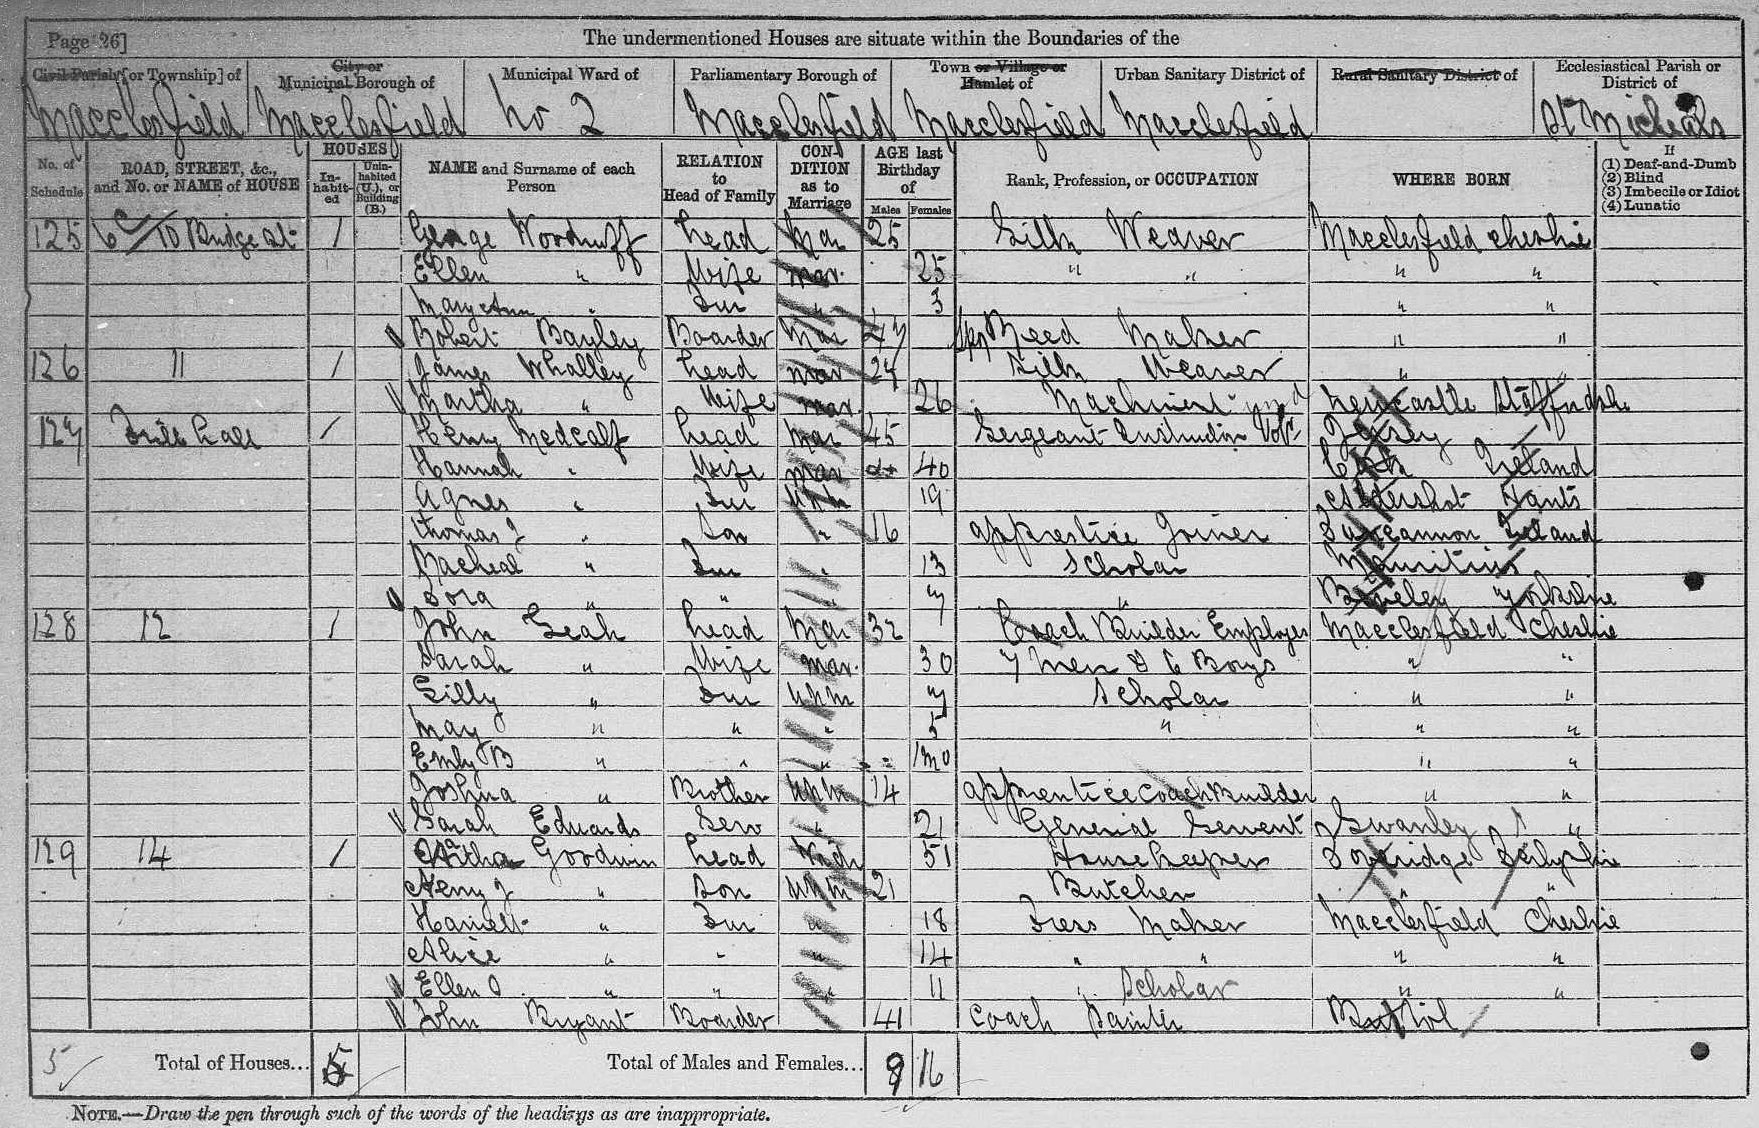 Page 26]
The undermentioned Houses are situate within the Boundaries of the
Civil Parish [or Township] of
City or Municipal Borough of
Municipal Ward of
Parliamentary Borough of
Town or Village or Hamlet of
Urban Sanitary District of
Rural Sanitary District of
Ecclesiastical Parish or District of
Macclesfield Macclesfield No 2 Macclesfield Macclesfield Macclesfield St Micheals
No. of Schedule
ROAD, STREET, &c., and No. or NAME of HOUSE
HOUSES
In-habit-ed
Unin-habited (U.), or Building (B.)
NAME and Surname of each Person
RELATION to Head of Family
CON-DITION as to Marriage
AGE last Birthday of
Males Females
Rank, Profession, or OCCUPATION
WHERE BORN
If
(1) Deaf-and-Dumb
(2) Blind
(3) Imbecile or Idiot
(4) Lunatic
125 10 Bridge St 1 George Woodruff head Mar 25 Silk Weaver Macclesfield Cheshire
Ellen " Wife Mar 25 " " " "
Mary Ann " Dur " 3 " "
Robert Bayley Boarder Mar 47 Reed Maker " "
126 11 1 James Whalley head mar 27 Silk Weaver " "
Martha " Wife mar 26 Machinist Newcastle Staffordsh
127 Drill hall 1 Henry Medcalf head Mar 45 Sergeant Instructor Vols Jersey
Hannah " Wife mar 40 Cork Ireland
Agnes " Dur unm 19 Aldershot Hants
Thomas J " Son " 16 apprentice Joiner Dungannon Ireland
Racheal " Dur " 13 Scholar Mauritius
Dora " " " 7 " Beverley Yorkshire
128 12 1 John Leah head Mar 32 Coach Builder Employes Macclesfield Cheshire
Sarah " Wife mar 30 7 Men & 6 Boys " "
Lilly " Dur unm 7 Scholar " "
May " " " 5 " " "
Emily B " " " 1 mo " "
Joshua " Brother unm 14 apprentice Coach Builder " "
Sarah Edwards Serv " 21 General Servent Swanley "
129 14 1 Goodwin head Widr 51 Housekeeper Doveridge Derbyshire
Henry J " Son unm 21 Butcher " "
Harriett " Dur " 18 Dress Maker Macclesfield Cheshire
Alice " " " 14 " " " "
Ellen O " " " 11 Scholar " "
John Bryant Boarder 41 Coach Painter Bristol
5 Total of Houses... 5 Total of Males and Females... 9 16
NOTE.—Draw the pen through such of the words of the headings as are inappropriate.